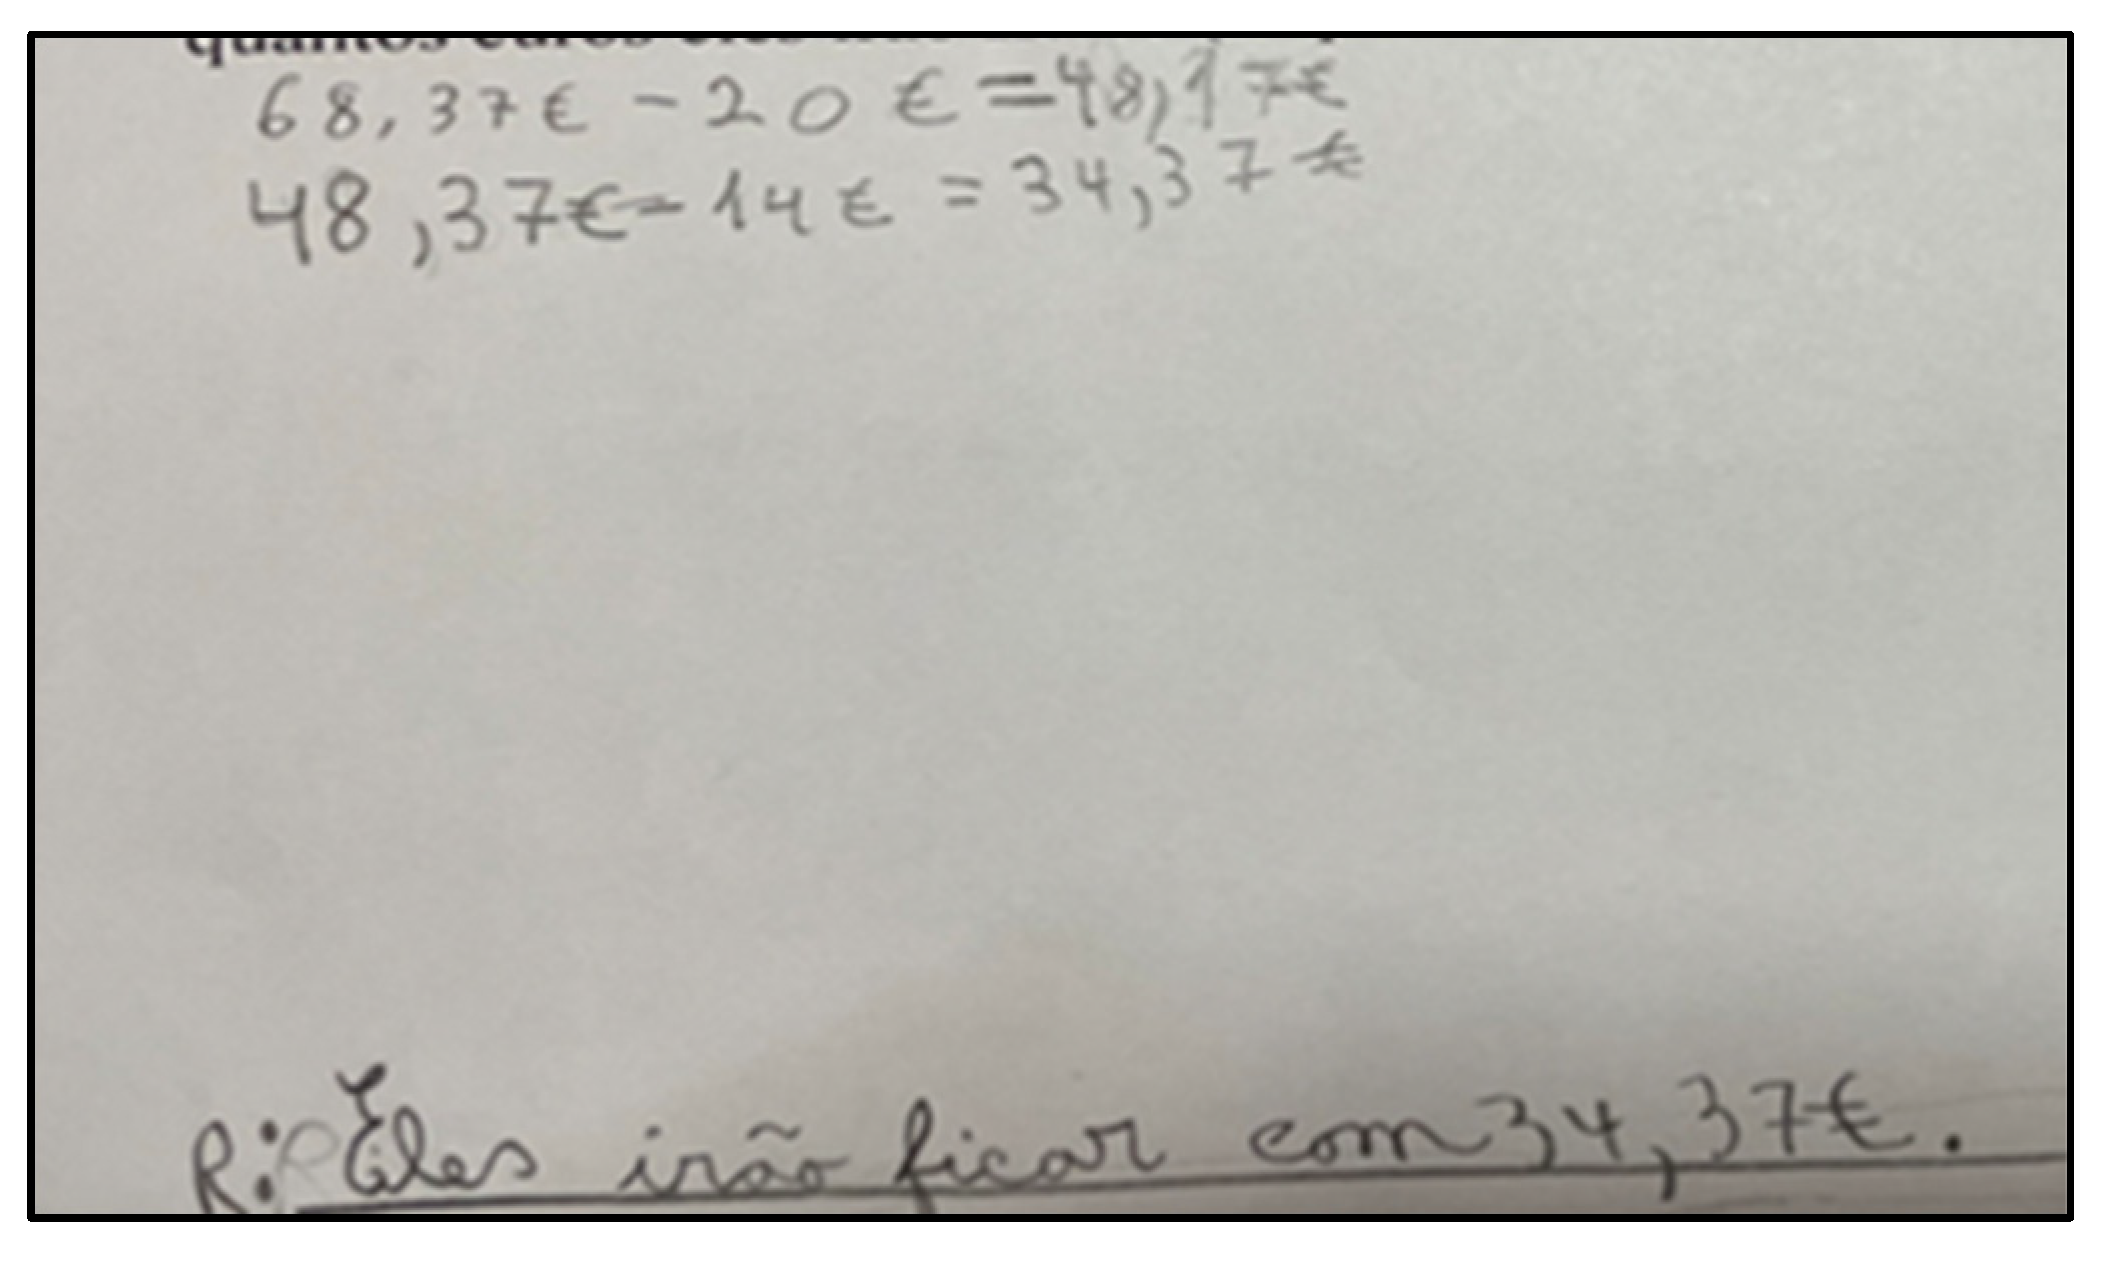 quantos euros eles
68,37€ - 20 € = 48,17€
48,37€ - 14€ = 34,37€
R: Eles irão ficar com 34,37€.